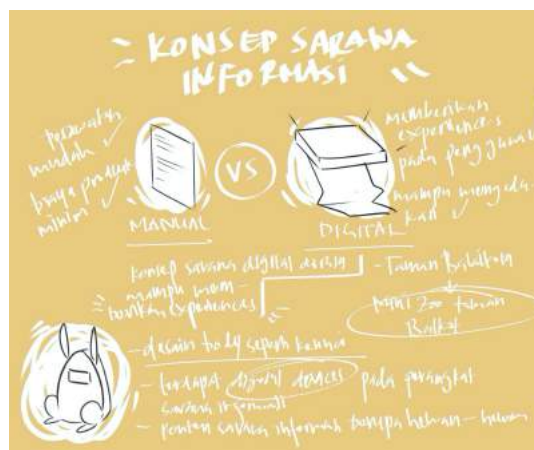 KONSEP SARANA
INFORMASI
perawatan
mudah
biaya produksi
minim
MANUAL
VS
memberikan
experiences
pada pengguna
mampu mengedu-
kasi
DIGITAL
konsep sarana digital
mampu mem-
berikan experiences
- Taman Balaikota
mini zoo taman
Balkot
- desain body seperti kelinci
- terdapat digital devices pada perangkat
sarana informasi
- konten sarana informasi berupa hewan-hewan